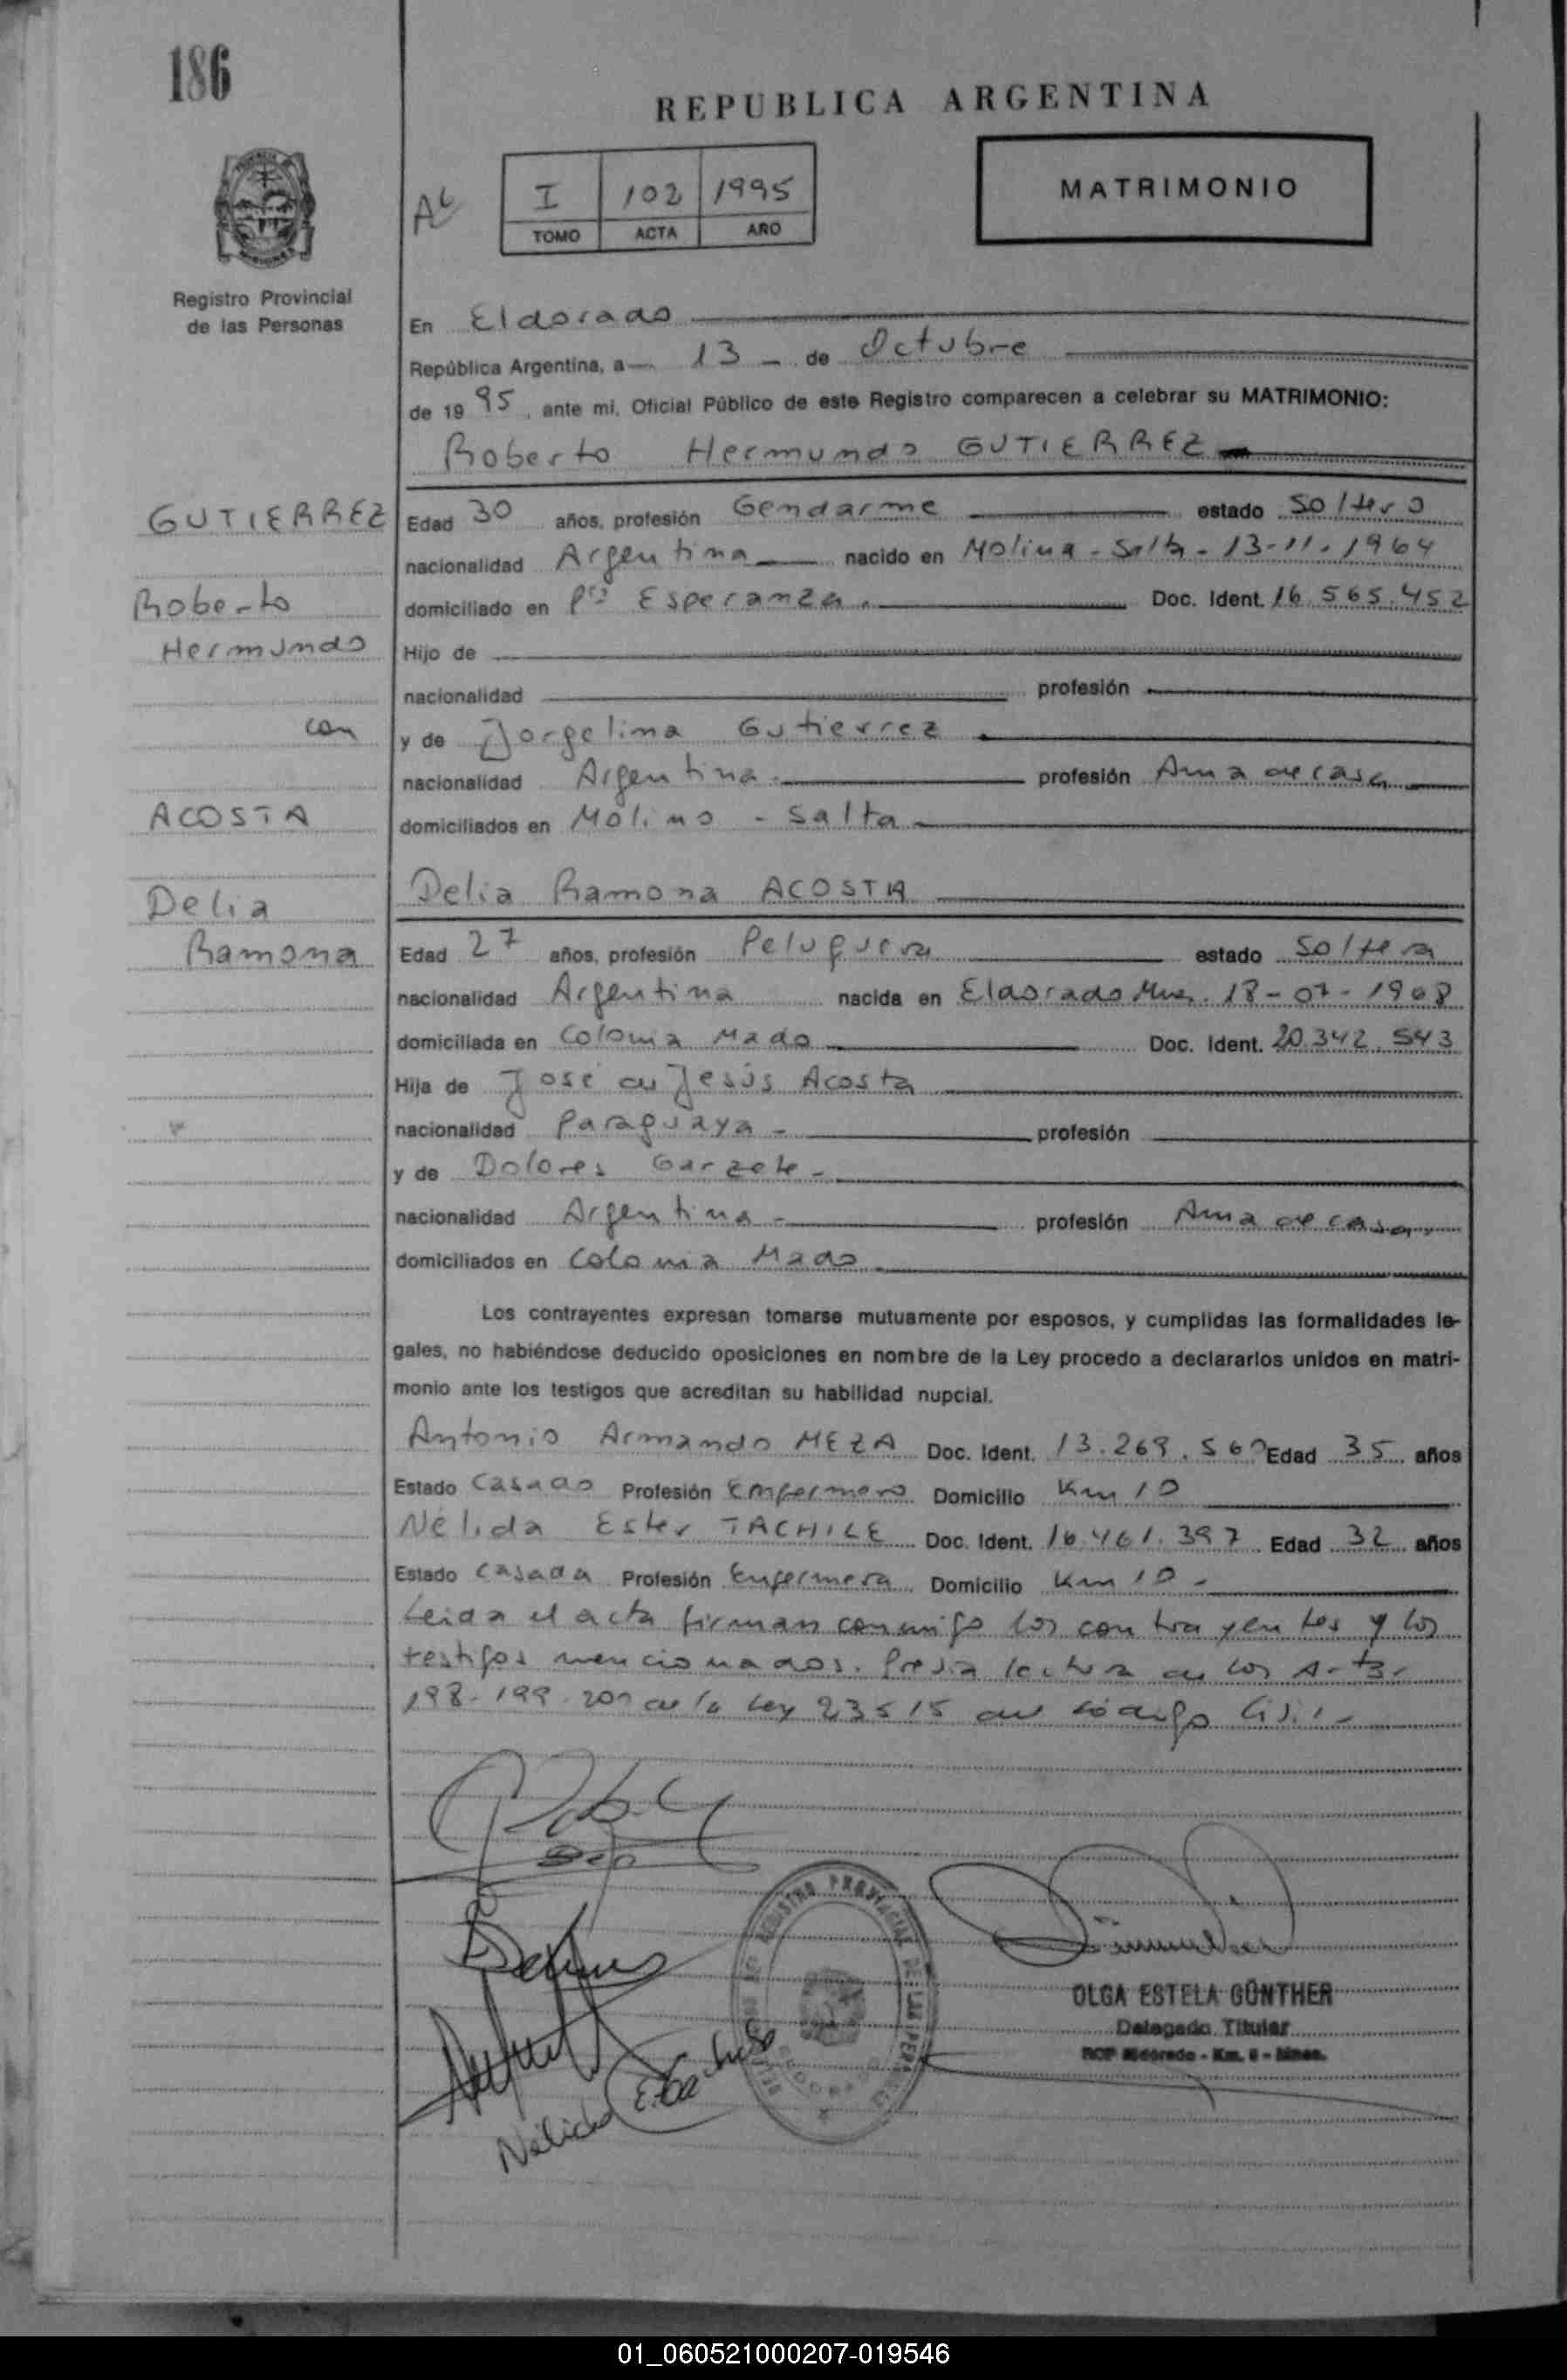 186
REPUBLICA ARGENTINA
I 102 1995
TOMO ACTA AÑO
MATRIMONIO
Registro Provincial
de las Personas
En Eldorado
República Argentina, a 13 - de Octubre
de 1995, ante mí, Oficial Público de este Registro comparecen a celebrar su MATRIMONIO:
Roberto Hermundo GUTIERREZ
GUTIERREZ
Roberto
Hermundo
con
ACOSTA
Delia
Ramona
Edad 30 años, profesión Gendarme estado Soltero
nacionalidad Argentina nacido en Molina - Salta - 13-11-1964
domiciliado en Pto Esperanza. Doc. Ident. 16.565.452
Hijo de
nacionalidad profesión
y de Jorgelina Gutierrez
nacionalidad Argentina profesión Ama de casa
domiciliados en Molino - Salta
Delia Ramona ACOSTA
Edad 27 años, profesión Peluquera estado Soltera
nacionalidad Argentina nacida en Eldorado Mnes. 18-07-1968
domiciliada en Colonia Mado Doc. Ident. 20.342.543
Hija de José de Jesús Acosta
nacionalidad Paraguaya - profesión
y de Dolores Garzete -
nacionalidad Argentina - profesión Ama de casa
domiciliados en Colonia Mado
Los contrayentes expresan tomarse mutuamente por esposos, y cumplidas las formalidades le-
gales, no habiéndose deducido oposiciones en nombre de la Ley procedo a declararlos unidos en matri-
monio ante los testigos que acreditan su habilidad nupcial.
Antonio Armando MEZA Doc. Ident. 13.269.560 Edad 35 años
Estado Casado Profesión Enfermero Domicilio Km 10
Nélida Ester TACHILE Doc. Ident. 16.461.397 Edad 32 años
Estado Casada Profesión Enfermera Domicilio Km 10 -
Leida el acta firman conmigo los contrayentes y los
testigos mencionados. Previa lectura de los Arts.
198-199-200 de la Ley 23515 del Código Civil -
OLGA ESTELA GÜNTHER
Delegado Titular
01_060521000207-019546